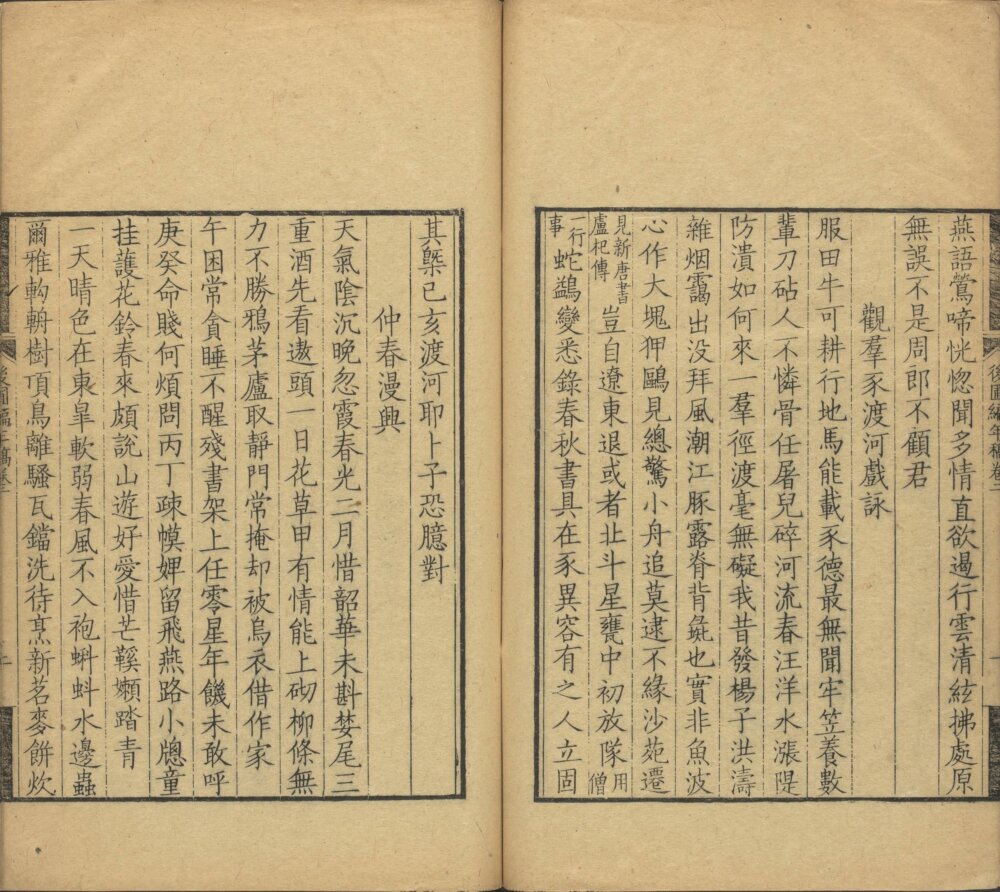 燕語鶯啼恍惚聞多情直欲遏行雲清絃拂處原
無誤不是周郎不顧君
觀羣豕渡河戲詠
服田牛可耕行地馬能載豕德最無聞牢笠養數
輩刀砧人不憐骨任屠兒碎河流春汪洋水漲隄
防潰如何來一羣徑渡毫無礙我昔發楊子洪濤
雜烟靄出没拜風潮江豚露脊背彘也實非魚波
心作大塊狎鷗見總驚小舟追莫逮不緣沙苑遷
見新唐書
盧杞傳
豈自遼東退或者北斗星甕中初放隊
用
僧
一行
事
蛇鷁變悉錄春秋書具在豕異容有之人立固
其槩己亥渡河耶卜子恐臆對
仲春漫興
天氣陰沉晚忽霞春光二月惜韶華未斟婪尾三
重酒先看遨頭一日花草甲有情能上砌柳條無
力不勝鴉茅廬取靜門常掩却被烏衣借作家
午困常貪睡不醒殘書架上任零星年饑未敢呼
庚癸命賤何煩問丙丁疎幙婢留飛燕路小牕童
挂護花鈴春來頗說山遊好愛惜芒鞵嬾踏青
一天晴色在東臯軟弱春風不入袍蝌蚪水邊蟲
爾雅軥輈樹頂鳥離騷瓦鐺洗待烹新茗麥餅炊
後圃編年稿卷二